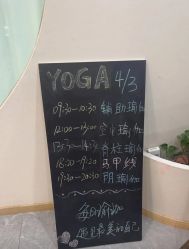 YOGA 4/3
09:30-10:30 辅助瑜伽
12:00-13:00 空中瑜伽
13:30-14:30 脊柱瑜伽
18:00-19:20 马甲线
19:30-20:30 阴瑜伽
每日瑜伽
遇见最美的自己